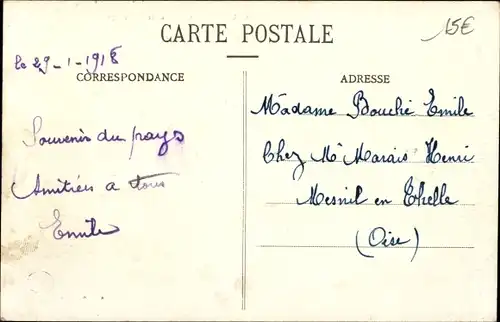 CARTE POSTALE
15€
le 29-1-1918
CORRESPONDANCE
Souvenir du pays
Amitiés a tous
Emile
ADRESSE
Madame Bouché Emile
Chez Mr Marais Henri
Mesnil en Thelle
(Oise)